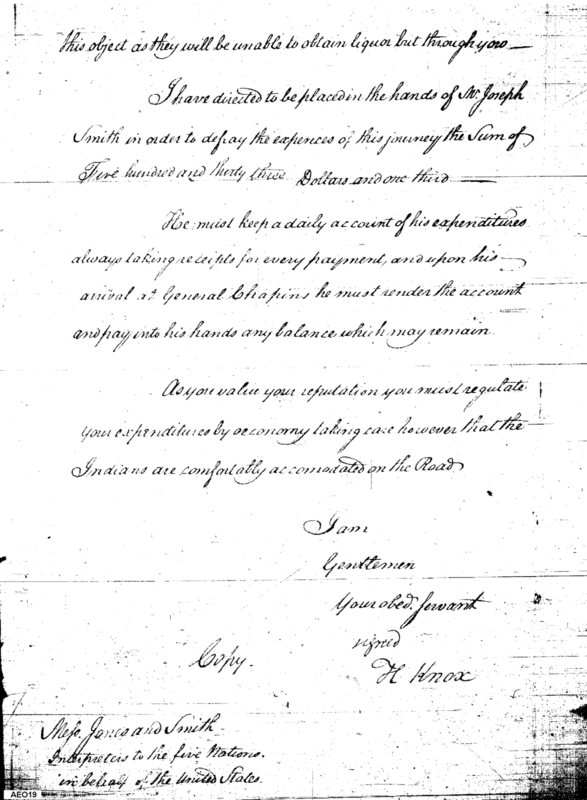 this object as they will be unable to obtain liquor but through you —
I have directed to be placed in the hands of Mr. Joseph
Smith in order to defray the expences of this journey the Sum of
Five hundred and thirty three Dollars and one third —
He must keep a daily account of his expenditures
always taking receipts for every payment, and upon his —
arrival at General Chapins he must render the account
and pay into his hands any balance which may remain
As you value your reputation you must regulate
your expenditures by oeconomy taking care however that the
Indians are comfortably accomodated on the Road
I am
Gentlemen
Your obed. Servant
signed
H Knox
Copy.
Mess. Jones and Smith
Interpreters to the five Nations.
in behalf of the United States.
AEO19